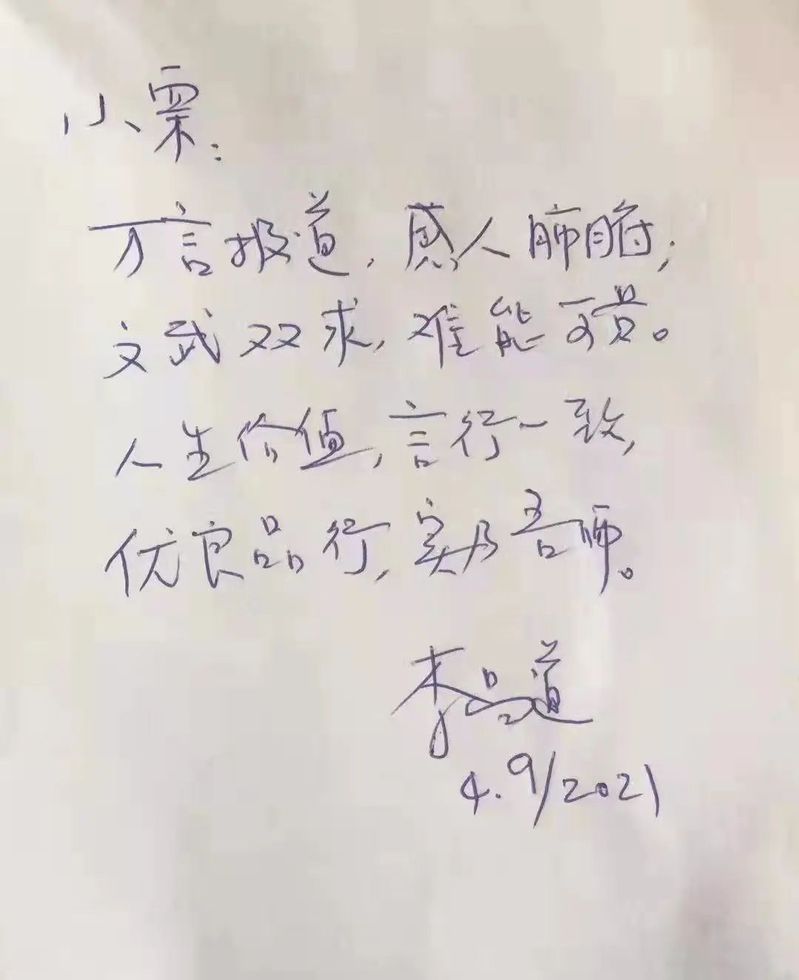 小栗:
万言报道,感人肺腑;
文武双求,难能可贵。
人生价值,言行一致,
优良品行,实乃吾师。
李吕道
4.9/2021